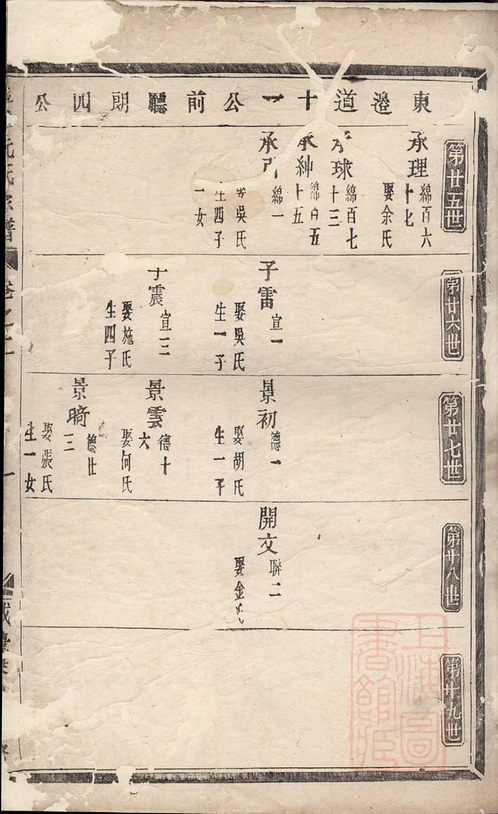 東澄道十一公前聽朗四公
第廿五世
承理
綿百六
十七
娶余氏
承球
綿百七
十三
承紳
綿百五
十五
承
綿一
娶吳氏
生四子
一女
第廿六世
子雷
宣一
娶吳氏
生一子
子震
宣三
娶施氏
生四子
第廿七世
景初
德一
娶胡氏
生一子
景雲
德十
六
娶何氏
景暘
德廿
三
娶張氏
生一女
第廿八世
開文
聯二
娶金氏
第廿九世
上海圖
書館藏